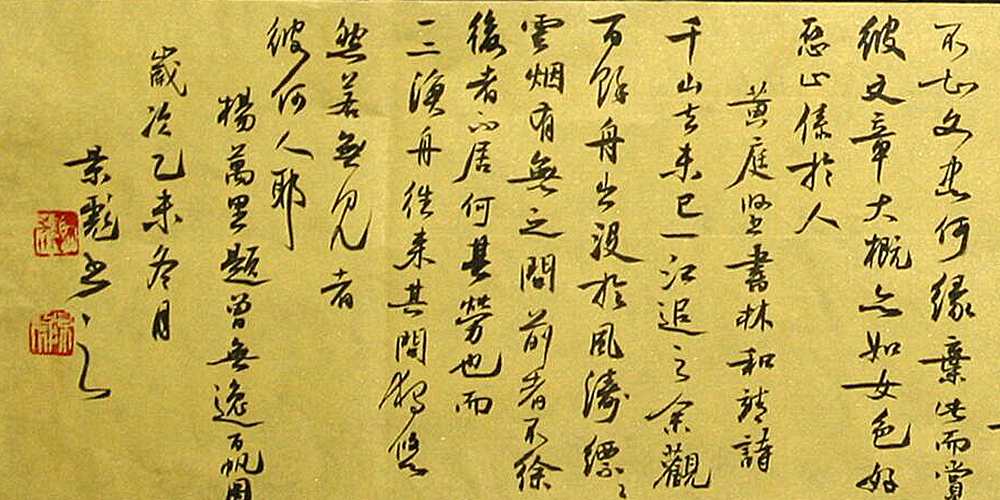 不知文忠何緣棄此而賞
彼文章大概亦如女色好
惡止係於人
黃庭堅書林和靖詩
千山去未已一江追之余觀
百餘舟出沒於風濤縹〻
雲烟有無之間前者不徐
後者不居何其勞也而
二三漁舟往來其間獨悠
然若無見者
彼何人耶
楊萬里題曾無逸百帆圖
歲次乙未冬月
景彪书之